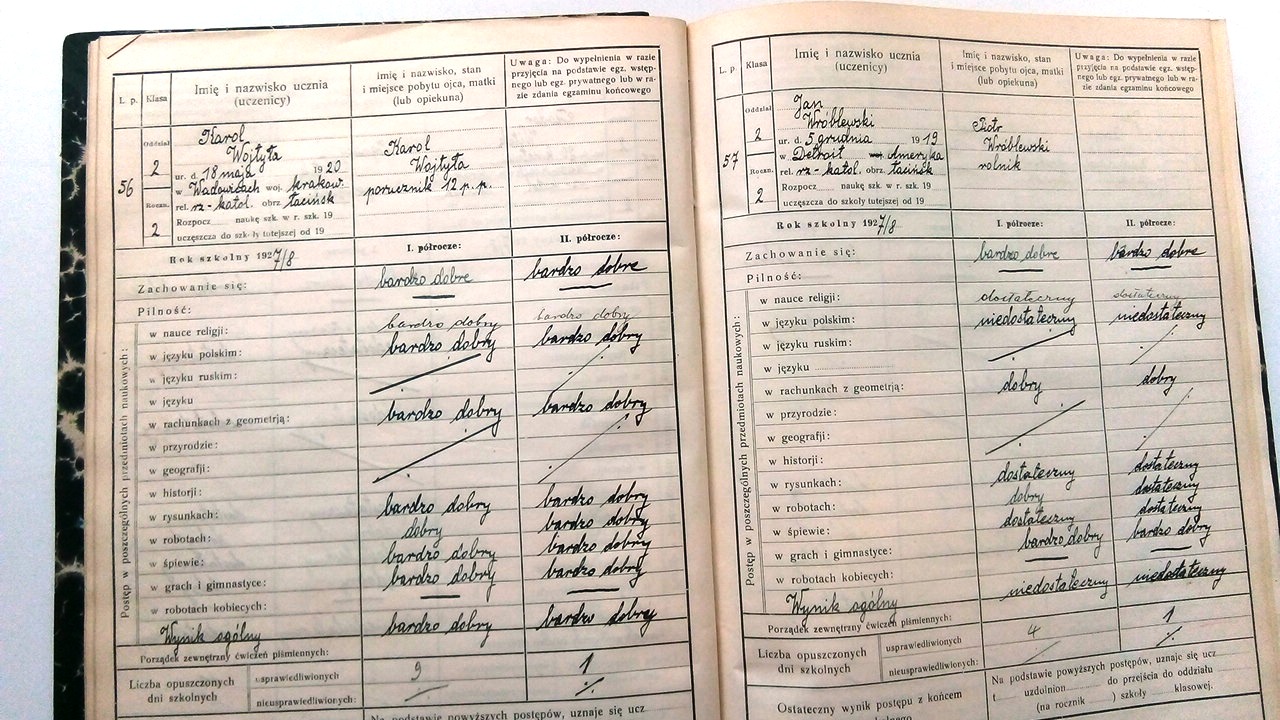 L. p.
Klasa
Imię i nazwisko ucznia
(uczenicy)
Imię i nazwisko, stan
i miejsce pobytu ojca, matki
(lub opiekuna)
Uwaga: Do wypełnienia w razie
przyjęcia na podstawie egz. wstęp-
nego lub egz. prywatnego lub w ra-
zie zdania egzaminu końcowego
56
Oddział
2
Roczn.
2
Karol
Wojtyła
ur. d. 18 maja 1920
w Wadowicach woj. krakow.
rel. rz-katol. obrz. łacińsk
Rozpocz. naukę szk. w r. szk. 19
uczęszcza do szkoły tutejszej od 19
Karol
Wojtyła
porucznik 12 p. p.
Rok szkolny 1927/8
I. półrocze:
II. półrocze:
Zachowanie się: bardzo dobre bardzo dobre
Pilność:
Postęp w poszczególnych przedmiotach naukowych:
w nauce religji: bardzo dobry bardzo dobry
w języku polskim: bardzo dobry bardzo dobry
w języku ruskim:
w języku
w rachunkach z geometrją: bardzo dobry bardzo dobry
w przyrodzie:
w geografji:
w historji:
w rysunkach: bardzo dobry bardzo dobry
w robotach: dobry bardzo dobry
w śpiewie: bardzo dobry bardzo dobry
w grach i gimnastyce: bardzo dobry bardzo dobry
w robotach kobiecych:
Wynik ogólny bardzo dobry bardzo dobry
Porządek zewnętrzny ćwiczeń piśmiennych:
Liczba opuszczonych
dni szkolnych
usprawiedliwionych 9 1
nieusprawiedliwionych:
Na podstawie powyższych postępów, uznaje się ucz
L. p.
Klasa
Imię i nazwisko ucznia
(uczenicy)
Imię i nazwisko, stan
i miejsce pobytu ojca, matki
(lub opiekuna)
Uwaga: Do wypełnienia w razie
przyjęcia na podstawie egz. wstęp-
nego lub egz. prywatnego lub w ra-
zie zdania egzaminu końcowego
57
Oddział
2
Roczn.
2
Jan
Wróblewski
ur. d. 5 grudnia 1919
w Detroit Ameryka
rel. rz-katol. obrz. łacińsk
Rozpocz. naukę szk. w r. szk. 19
uczęszcza do szkoły tutejszej od 19
Piotr
Wróblewski
rolnik
Rok szkolny 1927/8
I. półrocze:
II. półrocze:
Zachowanie się: bardzo dobre bardzo dobre
Pilność:
Postęp w poszczególnych przedmiotach naukowych:
w nauce religji: dostateczny dostateczny
w języku polskim: niedostateczny niedostateczny
w języku ruskim:
w języku
w rachunkach z geometrją: dobry dobry
w przyrodzie:
w geografji:
w historji:
w rysunkach: dostateczny dostateczny
w robotach: dobry dostateczny
w śpiewie: dostateczny dostateczny
w grach i gimnastyce: bardzo dobry bardzo dobry
w robotach kobiecych:
Wynik ogólny niedostateczny niedostateczny
Porządek zewnętrzny ćwiczeń piśmiennych:
Liczba opuszczonych
dni szkolnych
usprawiedliwionych 4 1
nieusprawiedliwionych:
Ostateczny wynik postępu z końcem
Na podstawie powyższych postępów, uznaje się ucz
uzdolnion do przejścia do oddziału
(na rocznik ) szkoły klasowej.